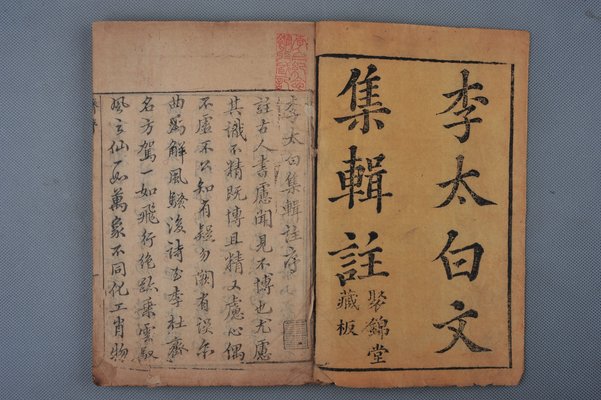 李太白文
集輯註
聚錦堂
藏板
李太白集輯註序
註古人書慮聞見不博也尤慮
其識不精既博且精又慮心偶
不虛不公知有疑勿闕有誤尔
曲爲解風騷後詩至李杜齊
名方駕一如飛行絶跡乘雲馭
風之仙一如萬象不同化工肖物